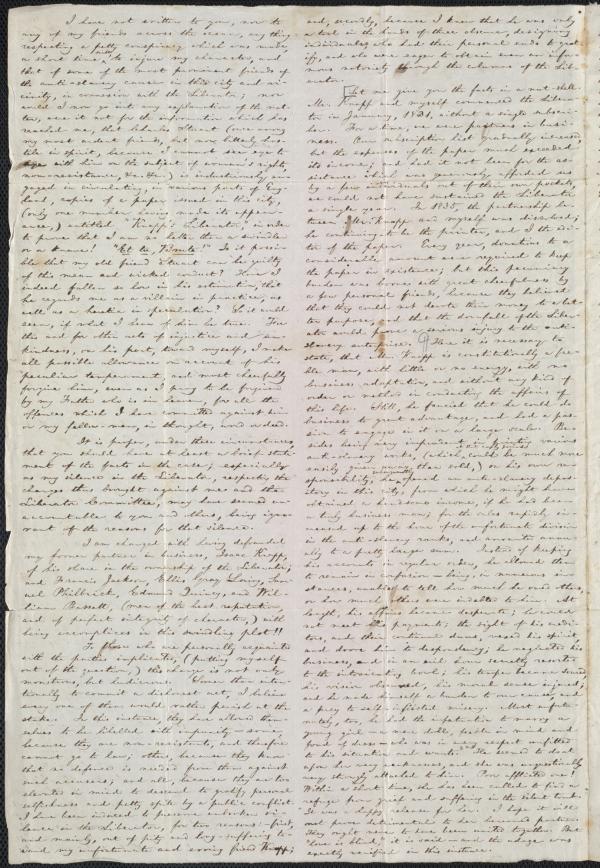 I have not written to you, nor to
any of my friends across the ocean, any thing
respecting a petty conspiracy which was made,
a short time ago, to injure my character, and
that of some of the most prominent friends of
the anti-slavery cause in this city and vi-
cinity, in connexion with the Liberator; nor
would I now go into any explanation of the mat-
ter, were it not for the information which has
reached me, that Charles Stuart (once among
my most ardent friends, but now bitterly hos-
tile in spirit, because I cannot see eye to
eye with him on the subject of women's rights,
non-resistance, &c. &c.) is industriously en-
gaged in circulating, in various parts of Eng-
land, copies of a paper issued in this city,
(only one number having made its appear-
ance,) entitled "Knapp's Liberator," in order
to prove that I am no better than a swindler
or a knave! "Et tu, Brute!" Is it possi-
ble that my old friend Stuart can be guilty
of this mean and wicked conduct? Have I
indeed fallen so low in his estimation, that
he regards me as a villain in practice, as
well as a heretic in speculation? So it would
seem, if what I hear of him be true. For
this and for other acts of injustice and un-
kindness, on his part, toward myself, I make
all possible allowance on account of his
peculiar temperament, and most cheerfully
forgive him, even as I pray to be forgiven
by my Father who is in heaven, for all the
offences which I have committed against him
or my fellow-men, in thought, word or deed.
It is proper, under these circumstances,
that you should have at least a brief state-
ment of the facts in the case; especially
as my silence in the Liberator, respecting the
charges thus brought against me and the
Liberator Committee, may have seemed un-
accountable to you and others, being igno-
rant of the reasons for that silence.
I am charged with having defrauded
my former partner in business, Isaac Knapp,
of his share in the ownership of the Liberator;
and Francis Jackson, Ellis Gray Loring, Sam-
uel Philbrick, Edmund Quincy, and Wil-
liam Bassett, (men of the best reputation,
and of perfect integrity of character,) with
being accomplices in this swindling plot!!
To those who are personally acquainted
with the parties implicated, (putting myself
out of the question,) this charge is not only
monstrous, but ludicrous. Sooner than inten-
tionally to commit a dishonest act, I believe
every one of them would rather perish at the
stake. In this instance, they have allowed them-
selves to be libelled with impunity—some,
because they are non-resistants, and therefore
cannot go to law; others, because they know
that no defence is needed from them against
such accusers; and all, because they are too
elevated in mind to descend to gratify personal
selfishness and petty spite by a public conflict.
I have been induced to preserve unbroken si-
lence in the Liberator, for two reasons—first,
and mainly, out of pity and long-suffering to-
ward my unfortunate and erring friend Knapp;
and, secondly, because I knew that he was only
a tool in the hands of three obscure, designing
individuals, who had their personal ends to grat-
ify, and who were eager to obtain even an infa-
mous notoriety through the columns of the Lib-
erator.
Let me give you the facts in a nut-shell.
Mr. Knapp and myself commenced the Libera-
tor in January, 1831, without a single subscri-
ber. For a time, we were partners in busi-
ness. Our subscription list gradually increased,
but the expenses of the paper much exceeded
its income; and had it not been for the as-
sistance which was generously afforded us
by a few individuals out of their own pockets,
we could not have sustained the Liberator
a single year. In 1835, the partnership be-
tween Mr. Knapp and myself was dissolved;
he continuing to be the printer, and I the edi-
tor of the paper. Every year, donations to a
considerable amount were required to keep
the paper in existence; but this pecuniary
burden was borne with great cheerfulness by
a few personal friends, because they believed
that they could not devote their money to a bet-
ter purpose, and that the downfall of the Liber-
ator would prove a serious injury to the anti-
slavery enterprise. Here it is necessary to
state, that Mr. Knapp is constitutionally a fee-
ble man, with little or no energy, with no
business adaptation, and without any kind of
order or method in conducting the affairs of
this life. Still, he fancied that he could do
business to great advantage, and had a pas-
sion to engage in it on a large scale. Be-
sides being very imprudent in printing various
anti-slavery works, (which could be much more
easily given away than sold,) on his own re-
sponsibility, he opened an anti-slavery depos-
itory in this city, from which he might have
obtained a handsome income, if he had been
a truly business man; for the sales rapidly in-
creased up to the hour of the unfortunate division
in the anti-slavery ranks, and amounted annu-
ally to a pretty large sum. Instead of keeping
his accounts in regular order, he allowed them
to remain in confusion—being, in numerous in-
stances, unable to tell how much he owed others,
or how much others were indebted to him. At
length, his affairs became desperate; he could
not meet his payments; the sight of his credi-
tors, and their continual duns, vexed his spirit,
and drove him to despondency; he neglected his
business, and in an evil hour secretly resorted
to the intoxicating bowl; his temper became soured,
his vision, his moral sense injured;
and he made himself a burden to our cause, and
a prey to self-inflicted misery. Most unfortu-
nately, too, he had the infatuation to marry a
young girl—a mere doll, feeble in mind and
fond of dress—who was in no respect suited
to his situation and wants. He seemed to doat
upon her weaknesses, and she was unquestionably
very strongly attached to him. Poor afflicted one!
Within a short time, she has been called to find a
refuge from grief and suffering in the silent tomb.
It was a happy release for her. I hope it will
not prove detrimental to her bereaved partner.
They ought never to have been united together. But
"love is blind," it is said—and the adage was
exactly verified in this instance.